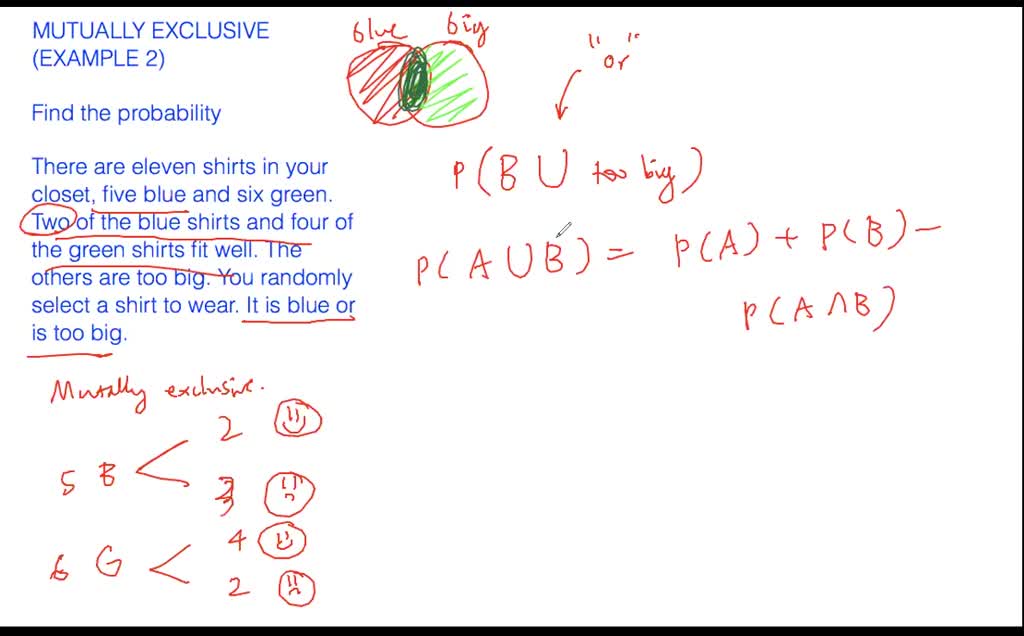 MUTUALLY EXCLUSIVE
(EXAMPLE 2)
Find the probability
There are eleven shirts in your
closet, five blue and six green.
Two of the blue shirts and four of
the green shirts fit well. The
others are too big. You randomly
select a shirt to wear. It is blue or
is too big.
Mutally exclusive.
5 B < 2
3
6 G < 4
2
blue big
" "
or
P(B ∪ too big)
P(A ∪ B) = P(A) + P(B) –
P(A ∩ B)